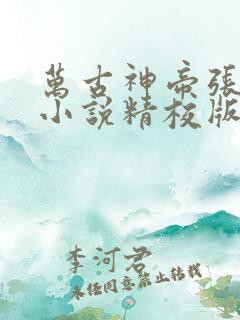 萬古神帝張
小說精校版
李河君
未經同意禁止轉載